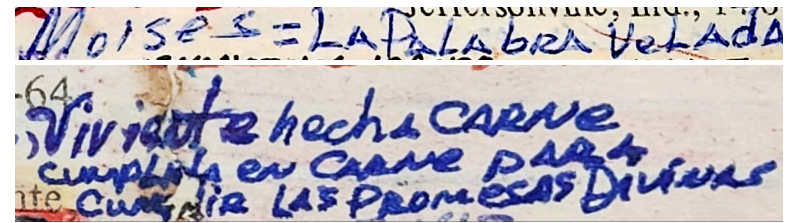 Jeffersonville, Ind.,
Moises = LA PALAbRA VeLAdA
-64
Viviente hecha CARNE
cumplida en CARNE PARA
nte, Cumplir LAS PROMESAS DIVINAS